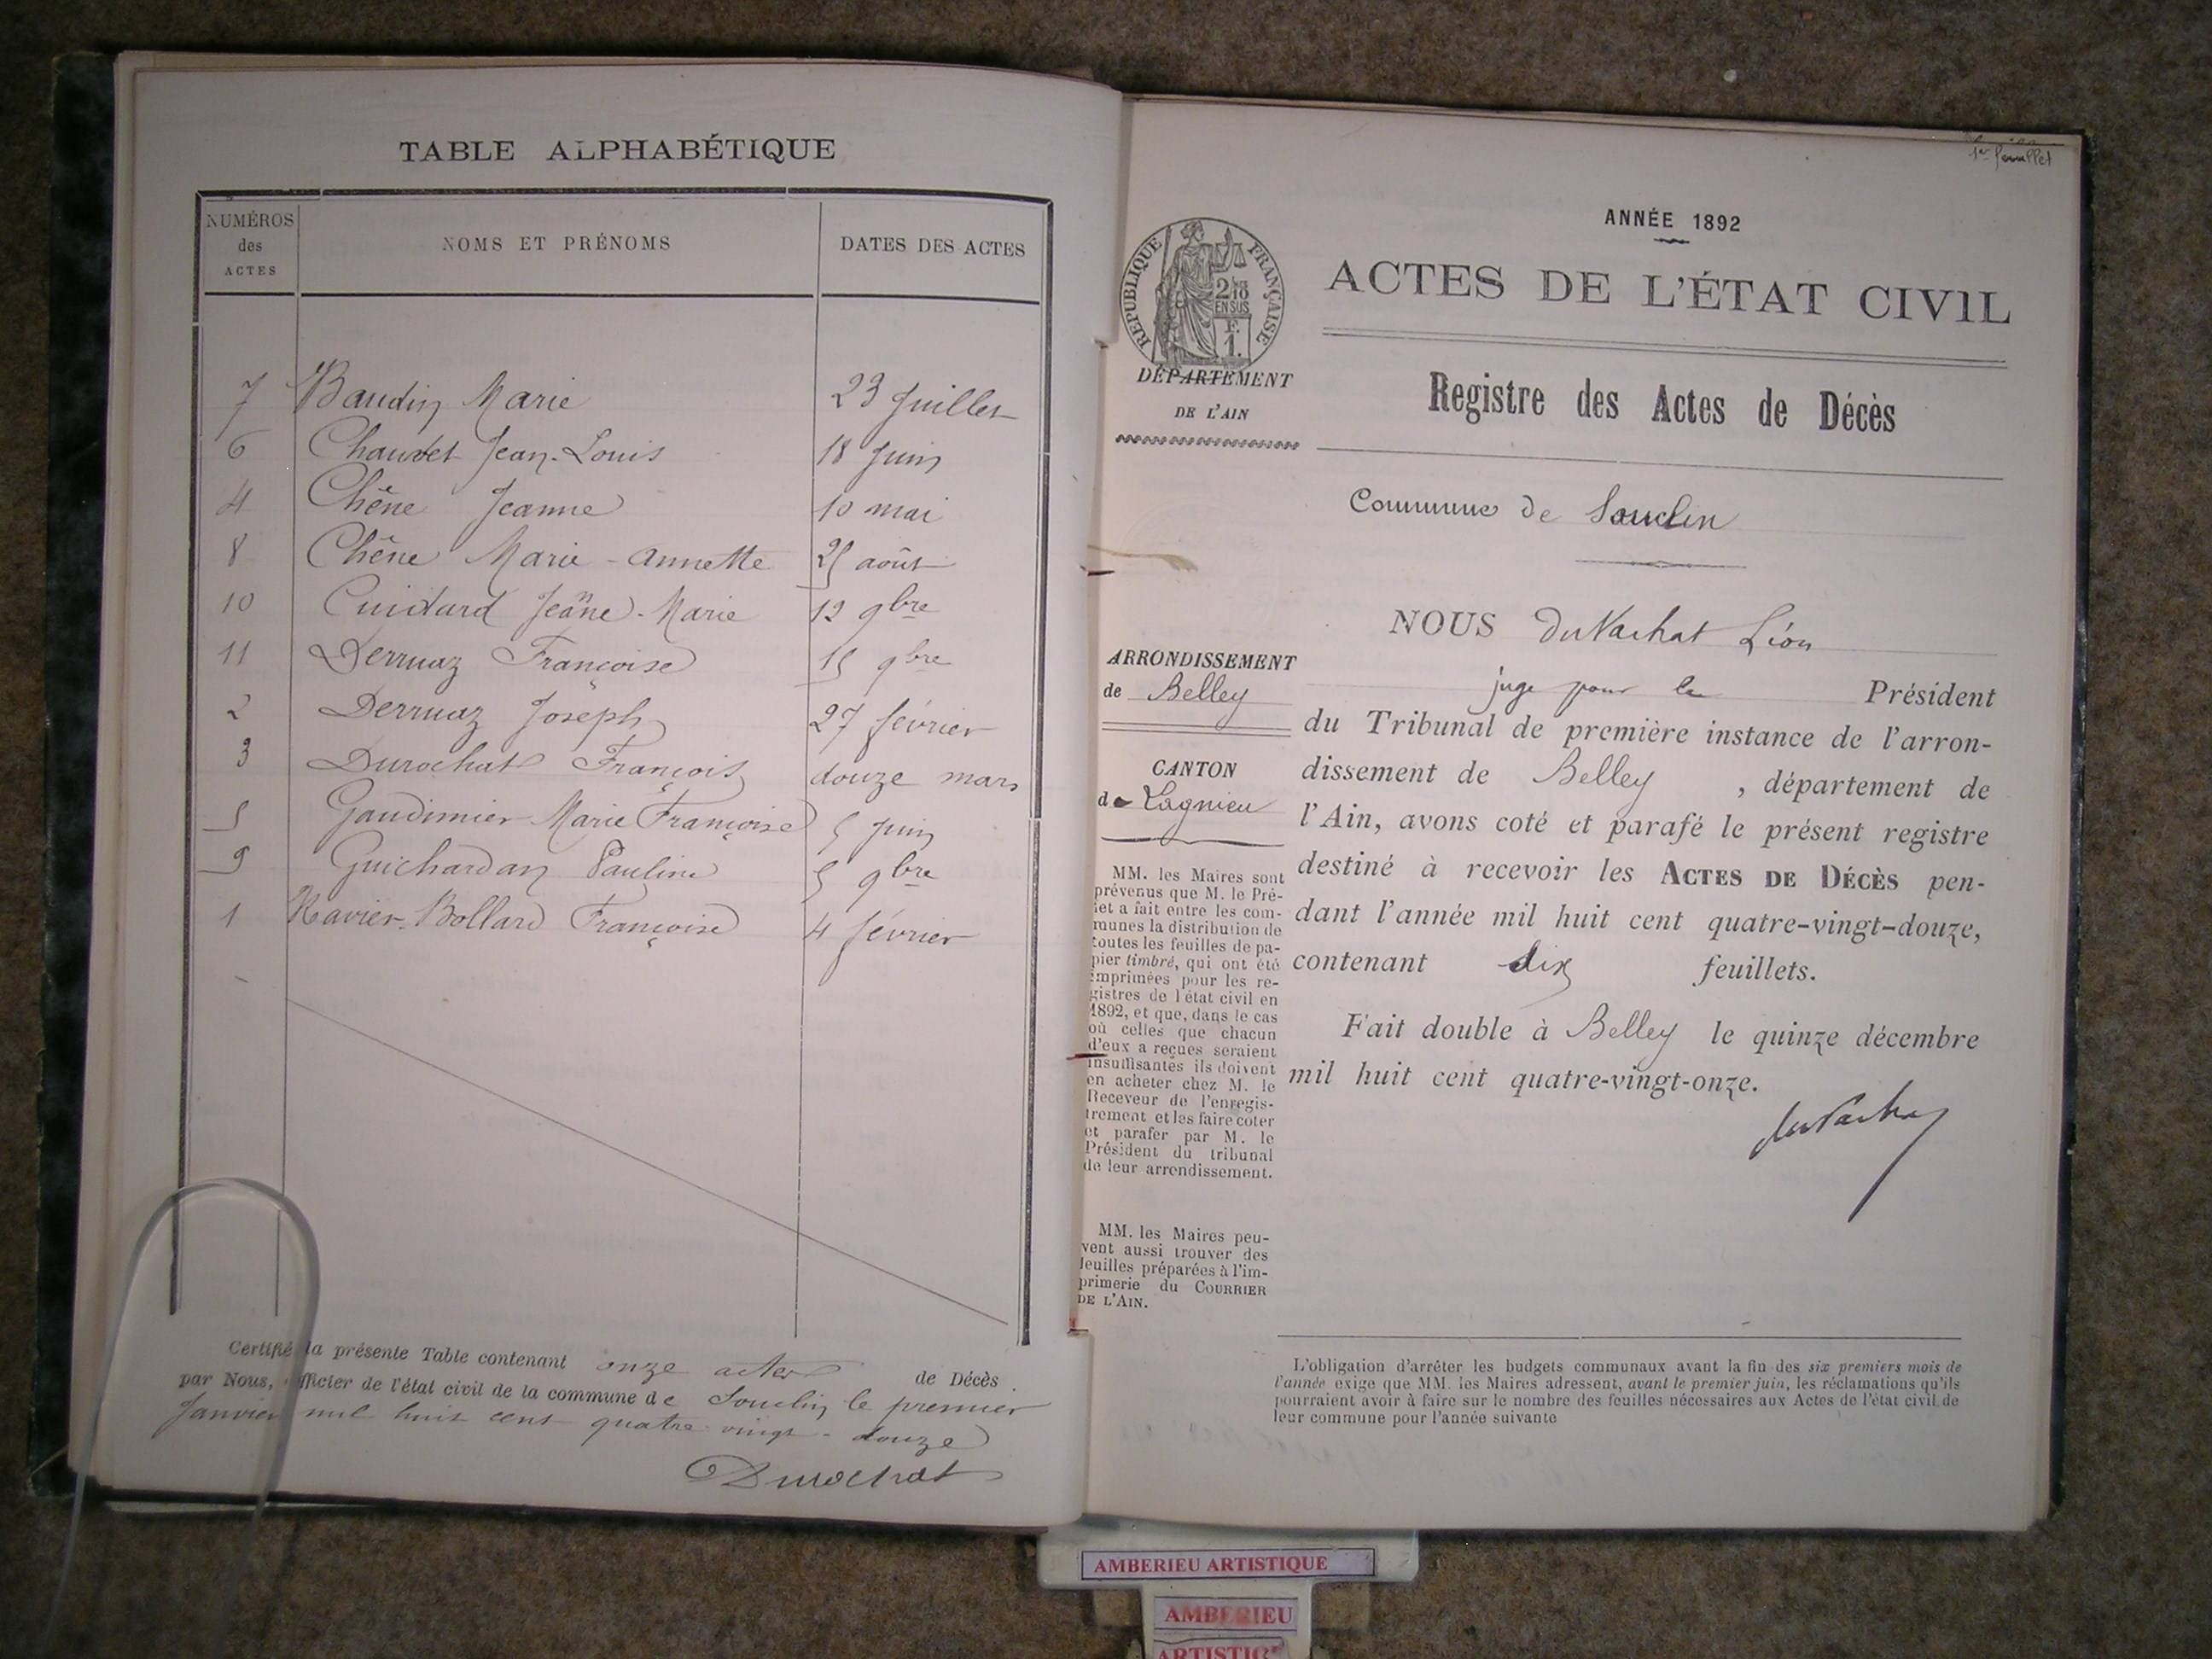 TABLE ALPHABÉTIQUE
NUMÉROS des ACTES
NOMS ET PRÉNOMS
DATES DES ACTES
7 Baudin Marie 23 Juillet
6 Chauvet Jean-Louis 18 Juin
4 Chêne Jeanne 10 mai
8 Chêne Marie-Annette 25 août
10 Cuidard Jeanne-Marie 12 9bre
11 Derruaz Françoise 15 9bre
2 Derruaz Joseph 27 février
3 Durochat François douze mars
5 Gaudimier Marie Françoise 5 Juin
9 Guichardan Pauline 5 9bre
1 Ravier-Bollard Françoise 4 février
Certifié la présente Table contenant onze actes de Décès
par Nous, officier de l'état civil de la commune de Souclin le premier
Janvier mil huit cent quatre vingt-douze
Durochat
1er feuillet
ANNÉE 1892
RÉPUBLIQUE FRANÇAISE
2/10
EN SUS
F.
1.
ACTES DE L'ÉTAT CIVIL
DÉPARTEMENT
DE L'AIN
Registre des Actes de Décès
Commune de Souclin
ARRONDISSEMENT
de Belley
CANTON
de Lagnieu
MM. les Maires sont
prévenus que M. le Pré-
fet a fait entre les com-
munes la distribution de
toutes les feuilles de pa-
pier timbré, qui ont été
imprimées pour les re-
gistres de l'état civil en
1892, et que, dans le cas
où celles que chacun
d'eux a reçues seraient
insuffisantes ils doivent
en acheter chez M. le
Receveur de l'enregis-
trement et les faire coter
et parafer par M. le
Président du tribunal
de leur arrondissement.
MM. les Maires peu-
vent aussi trouver des
feuilles préparées à l'im-
primerie du COURRIER
DE L'AIN.
NOUS DuVachat Léon
juge pour le Président
du Tribunal de première instance de l'arron-
dissement de Belley, département de
l'Ain, avons coté et parafé le présent registre
destiné à recevoir les ACTES DE DÉCÈS pen-
dant l'année mil huit cent quatre-vingt-douze,
contenant dix feuillets.
Fait double à Belley le quinze décembre
mil huit cent quatre-vingt-onze.
duVachat
L'obligation d'arrêter les budgets communaux avant la fin des six premiers mois de
l'année exige que MM. les Maires adressent, avant le premier juin, les réclamations qu'ils
pourraient avoir à faire sur le nombre des feuilles nécessaires aux Actes de l'état civil de
leur commune pour l'année suivante
AMBERIEU ARTISTIQUE
AMBERIEU
ARTISTIQ